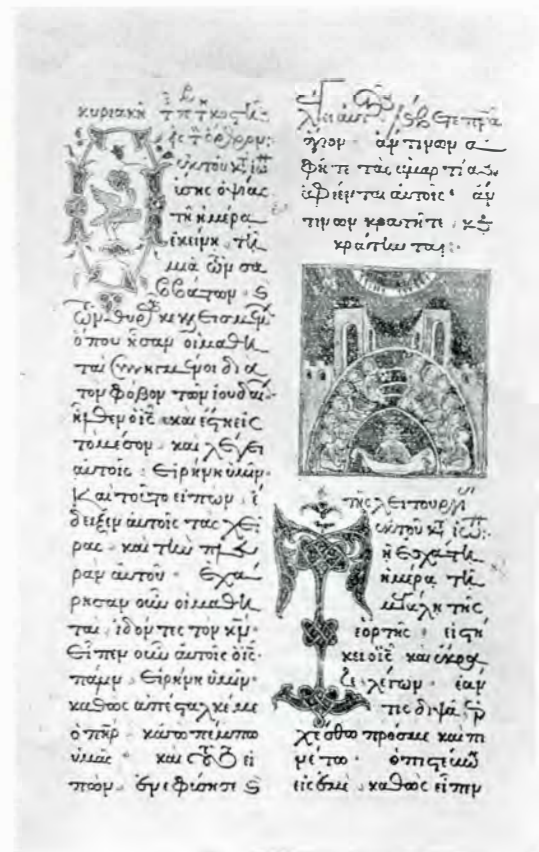 κυριακὴ τ πτκοστῆς
εἰς τ ὄρθρον:
ἐκ τοῦ κτ ἰω
ὔσης ὀψίας
τῆ ἡμέρα
ἐκείνη τῆ
μιᾶ τῶν σα
ββάτων. καὶ
τῶν θυρ κεκλεισμένων
ὅπου ἦσαν οἱ μαθη
ταὶ συνηγμένοι διὰ
τὸν φόβον τῶν ἰουδαί
ἦλθεν ὁ ι̅ς̅ καὶ ἔστη εἰς
τὸ μέσον. καὶ λέγει
αὐτοῖς. εἰρήνη ὑμῖν.
Καὶ τοῦτο εἰπὼν. ἔ
δειξεν αὐτοῖς τὰς χεῖ
ρας. καὶ τὴν πλευ
ρὰν αὐτοῦ. ἐχά
ρησαν οὖν οἱ μαθη
ταὶ. ἰδόντες τὸν κ̅ν̅.
Εἶπεν οὖν αὐτοῖς ὁ ι̅ς̅.
πάλιν. εἰρήνη ὑμῖν.
καθὼς ἀπέσταλκέ με
ὁ π̅η̅ρ̅. κἀγὼ πέμπω
ὑμᾶς. καὶ τοῦτο εἰ
πὼν. ἐνεφύσησε καὶ
λέγει αὐτοῖς λάβετε π̅ν̅α̅
ἅγιον. ἄν τινων ἀ
φῆτε τὰς ἁμαρτίας.
ἀφίενται αὐτοῖς. ἄν
τινων κρατῆτε. κε
κράτηνται:
τῆς λειτουργ
ἐκ τοῦ κτ ἰω:
Τῆ ἐσχάτη
ἡμέρα τῆ
μεγάλη τῆς
ἑορτῆς. εἱστή
κει ὁ ι̅ς̅ καὶ ἔκρα
ζε λέγων. ἐάν
τις διψᾶ. ἐρ
χέσθω πρός με καὶ πι
νέτω. ὁ πιστεύων
εἰς ἐμὲ. καθὼς εἶπεν